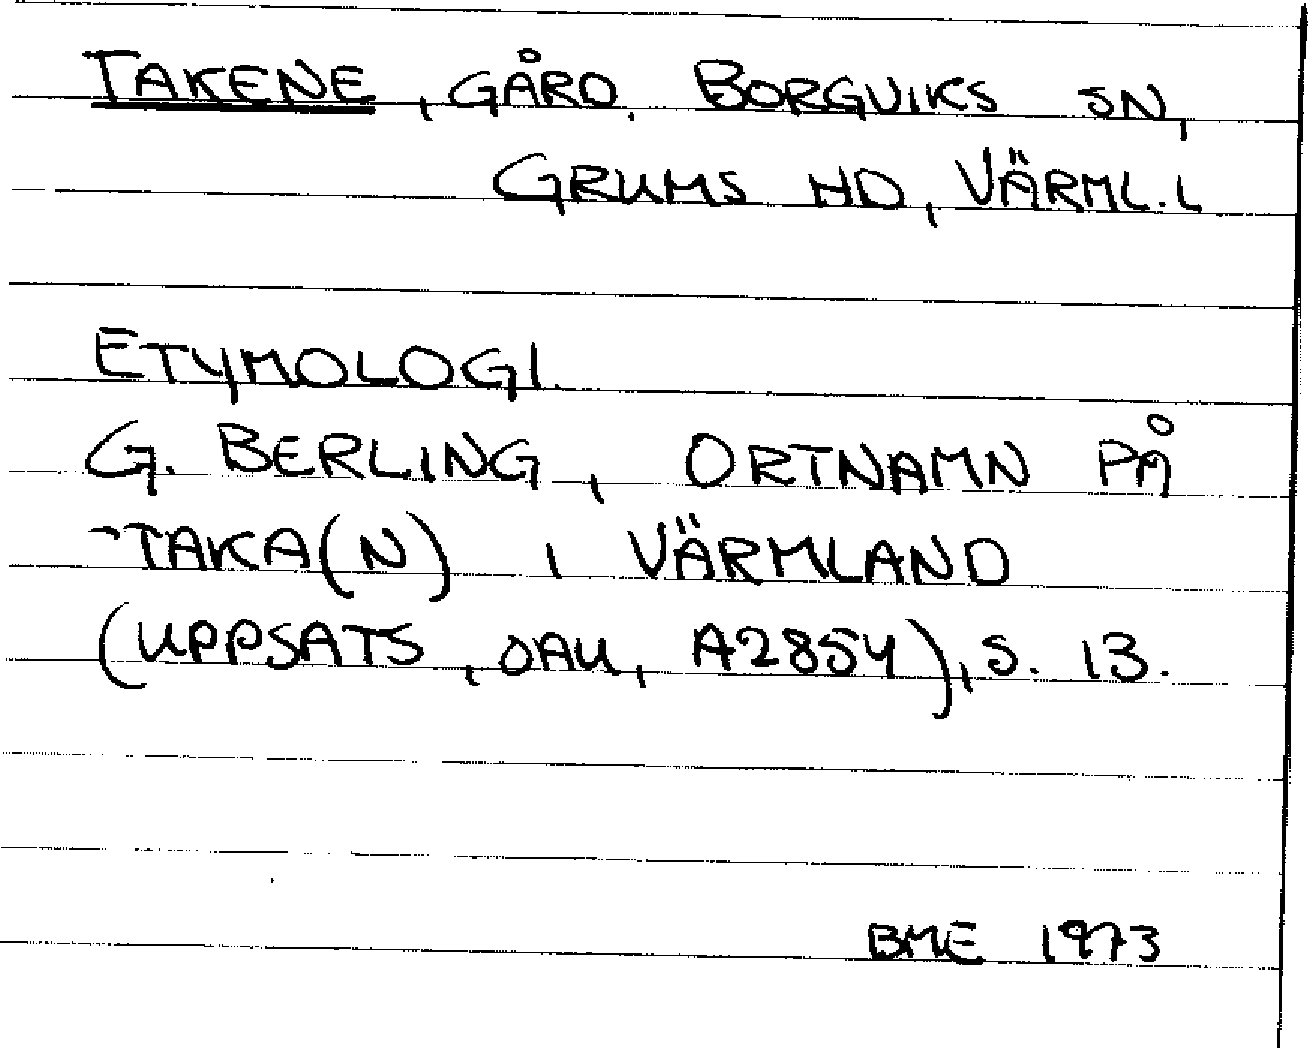 TAKENE, GÅRD, BORGVIKS SN,
GRUMS HD, VÄRML. L
ETYMOLOGI.
G. BERLING, ORTNAMN PÅ
-TAKA(N) I VÄRMLAND
(UPPSATS, OAU, A2854), S. 13.
BME 1973